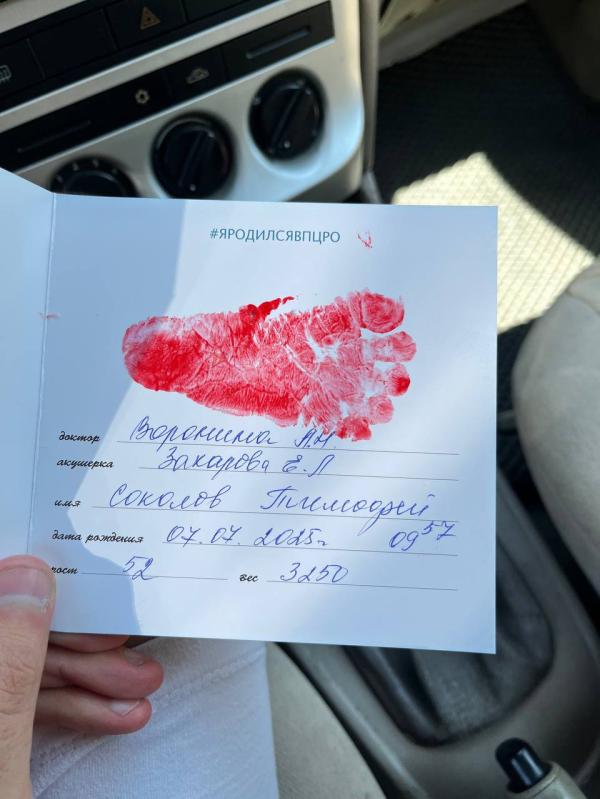 #ЯРОДИЛСЯВПЦРО
доктор Воронина А.Н.
акушерка Захарова Е.Л
имя Соколов Тимофей
дата рождения 07.07.2025г 09 57
рост 52 вес 3250